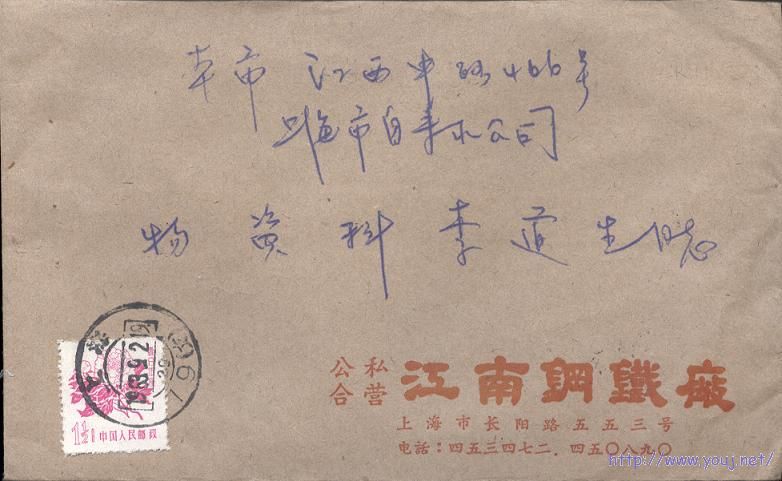 本市 江西中路466号
上海市自来水公司
物资科 李莲生同志
公私合营 江南鋼鐵廠
上海市长阳路五五三号
电話：四五三四七二．四五〇八九〇
1½ 中国人民邮政
1963.9.2.19
http://www.youj.net/